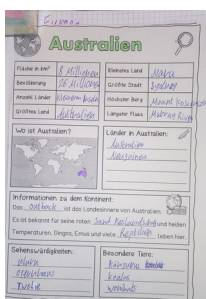 Australien
Fläche in km² 8 Millionen
Kleinstes Land Nauru
Bevölkerung 26 Millionen
Größte Stadt Sydney
Anzahl Länder
Höchster Berg Mount
Größtes Land Australien
Längster Fluss Murray River
Wo ist Australien?
Länder in Australien:
Australien
Neuseeland
Informationen zu dem Kontinent:
Das Outback ist das Landesinnere von Australien.
Es ist bekannt für seine roten und heißen
Temperaturen. Dingos, Emus und viele Reptilien leben hier.
Sehenswürdigkeiten:
Besondere Tiere:
uluru
opernhaus
koalas
wombats